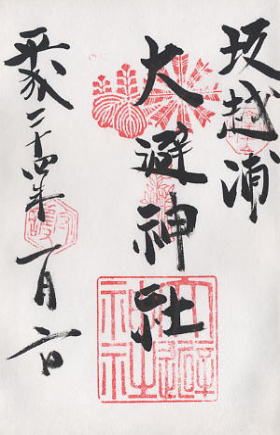 坂越浦
大避神社
平成二十四年一月六日
大避神社